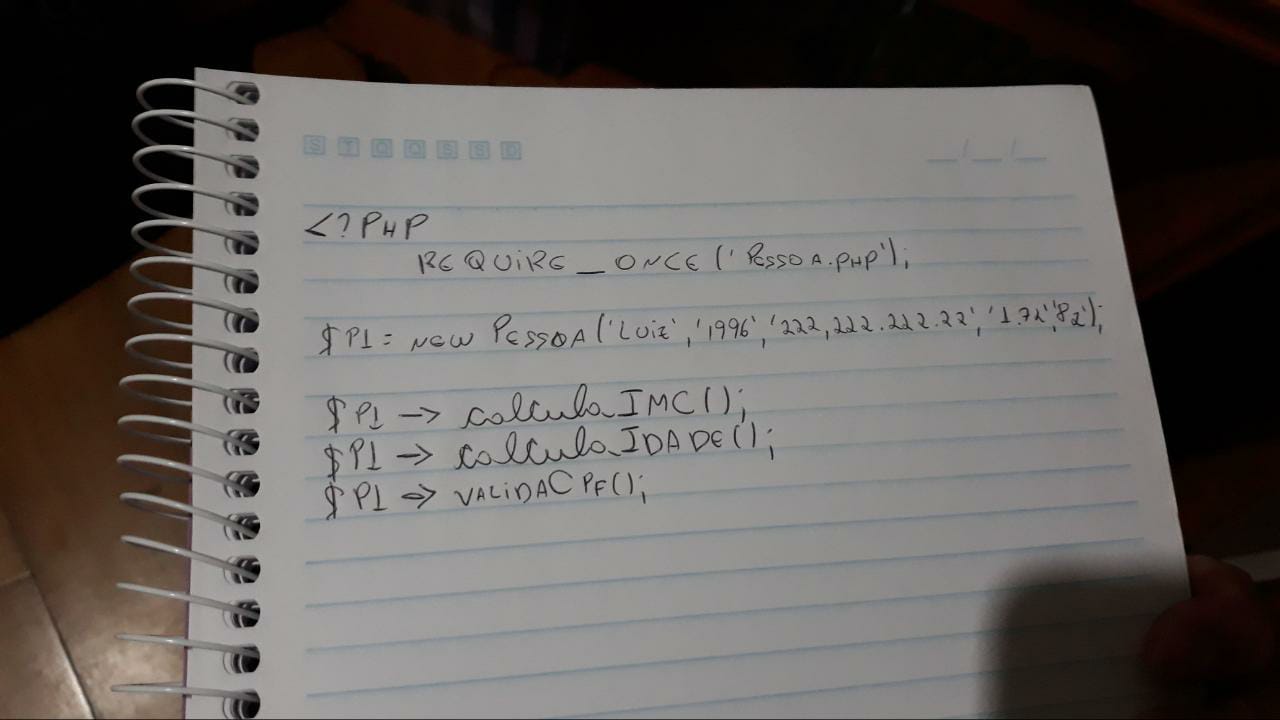 S T Q Q S S D __/__/__
<?PHP
REQUIRE_ONCE('PESSOA.PHP');
$P1 = NEW PESSOA('LUIZ','1996','222,222.222.22','1.72','82');
$P1 -> calculaIMC();
$P1 -> calculaIDADE();
$P1 => VALIDACPF();